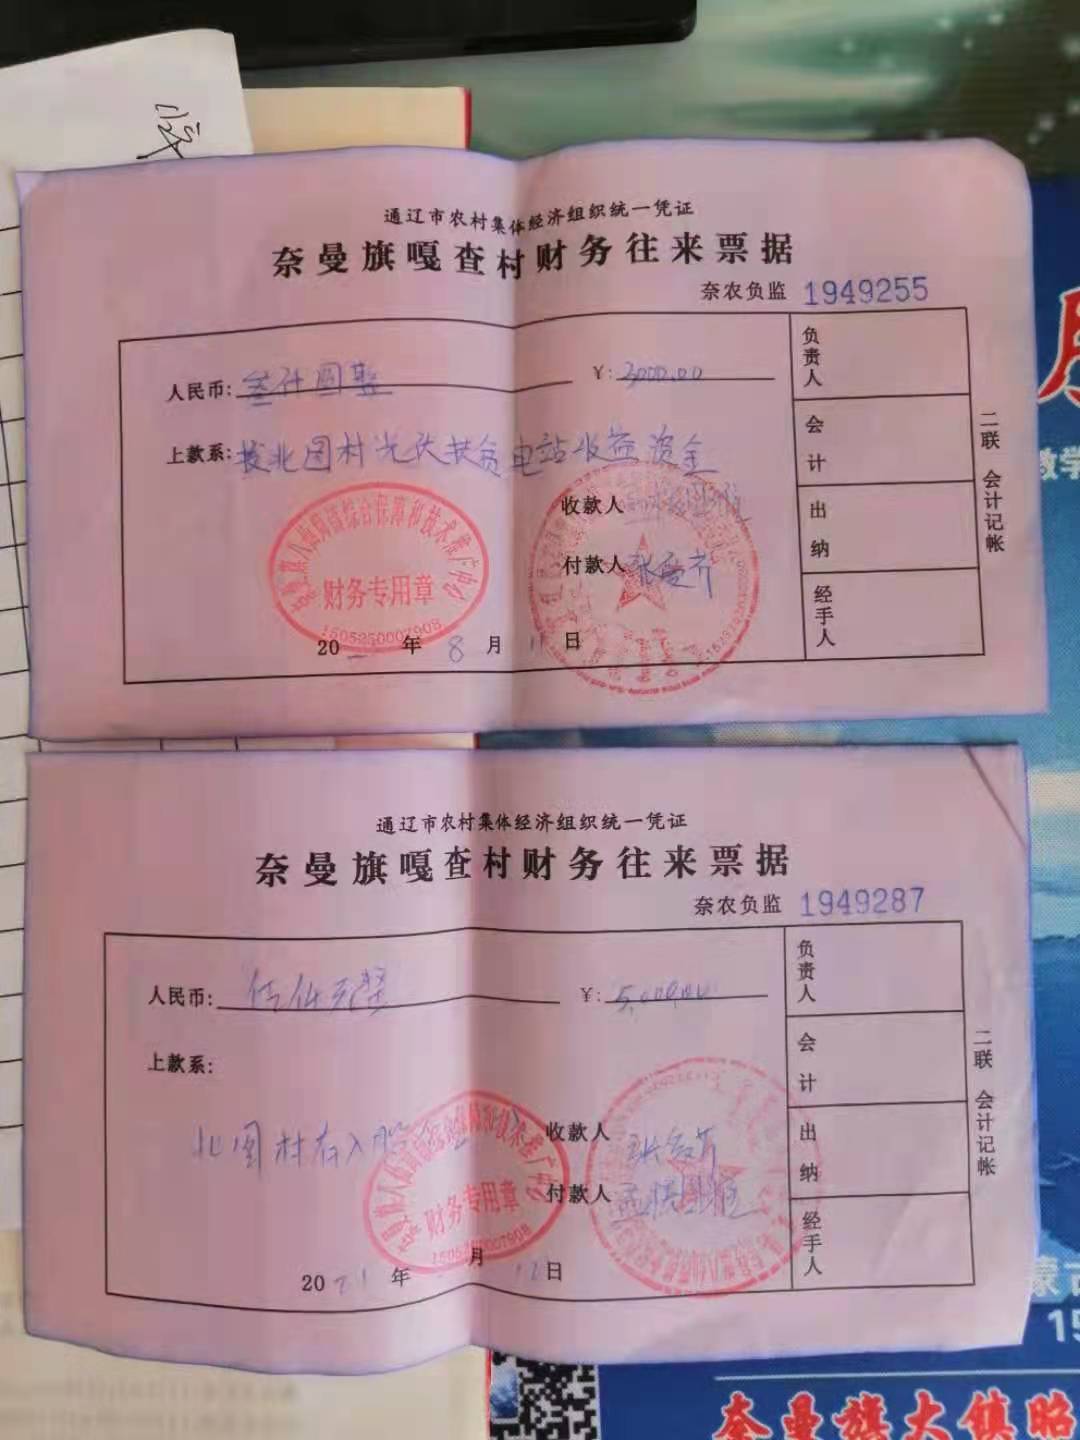 通辽市农村集体经济组织统一凭证
奈曼旗嘎查村财务往来票据
奈农负监 1949255
人民币: 叁仟圆整 ¥: 3000.00
上款系: 拨北图村光伏扶贫电站收益资金
收款人
付款人
财务专用章
1505250007908
20 年 8 月 11 日
负责人
会计
出纳
经手人
二联 会计记帐
通辽市农村集体经济组织统一凭证
奈曼旗嘎查村财务往来票据
奈农负监 1949287
人民币: 伍仟元整 ¥: 5,000.00
上款系:
北图村存入股
收款人
付款人
财务专用章
1505250007908
2021 年 月 12 日
负责人
会计
出纳
经手人
二联 会计记帐
教学
蒙古
15
奈曼旗大镇昭